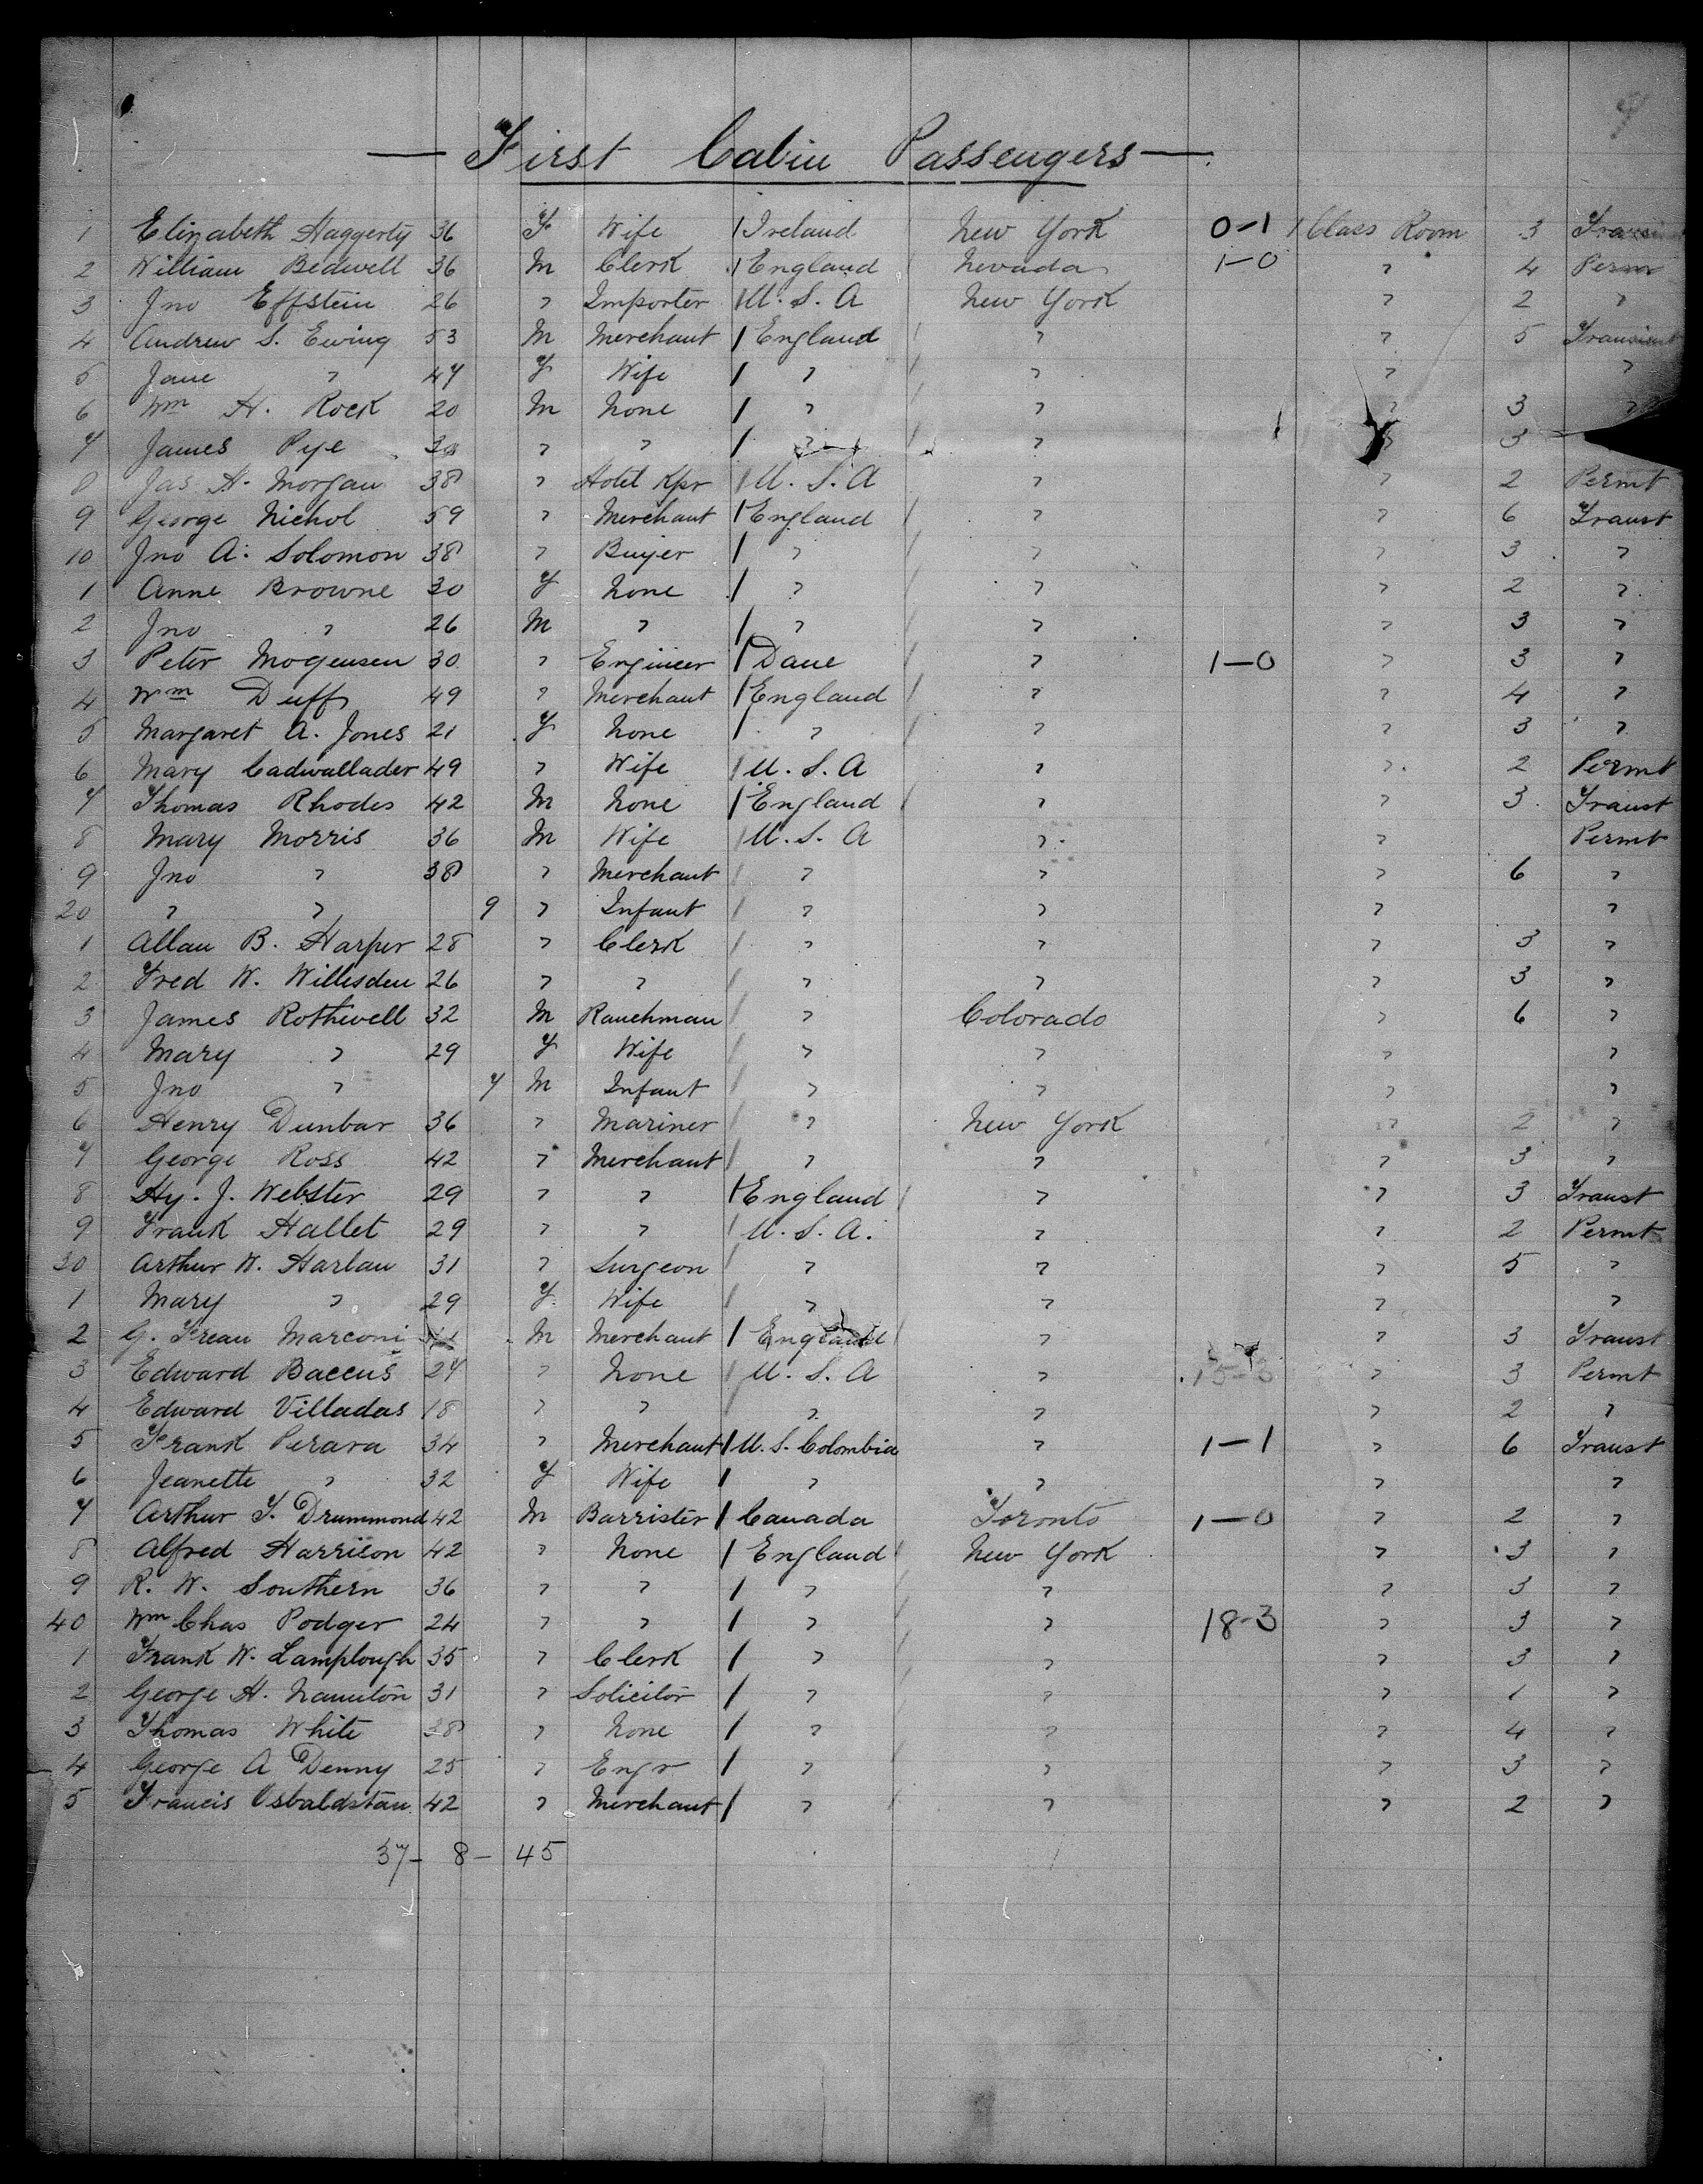 First Cabin Passengers
1 Elizabeth Haggerty 36 F Wife Ireland New York 0-1 1 Class Room 3
2 William Bedwell 36 M Clerk England Nevada 1-0 " 4
3 Jno Effstein 26 " Importer U.S.A New York " 2 "
4 Andrew S. Ewing 53 M Merchant England " " 5 Transient
5 Jane " 47 F Wife " " " "
6 Wm H. Rock 20 M None " " " 3 "
7 James Pye " " " " 3
8 Jas H. Morgan 38 " Hotel Kpr U.S.A " " 2 Permt
9 George Nichol 59 " Merchant England " " 6 Transt
10 Jno A. Solomon 38 " Buyer " " " 3 "
1 Anne Browne 30 F None " " " 2 "
2 Jno " 26 M " " " " 3 "
3 Peter Mogensen 30 " Engineer Dane " 1-0 " 3 "
4 Wm Duff 49 " Merchant England " " 4 "
5 Margaret A. Jones 21 F None " " " 3 "
6 Mary Cadwallader 49 " Wife U.S.A " " 2 Permt
7 Thomas Rhodes 42 M None England " " 3 Transt
8 Mary Morris 36 M Wife U.S.A " " Permt
9 Jno " 38 " Merchant " " " 6 "
20 " " 9 " Infant " " " "
1 Allan B. Harper 28 " Clerk " " " 3 "
2 Fred W. Willisden 26 " " " " " 3 "
3 James Rothwell 32 M Ranchman " Colorado " 6 "
4 Mary " 29 F Wife " " " "
5 Jno " 7 M Infant " " " "
6 Henry Dunbar 36 " Mariner " New York " 2 "
7 George Ross 42 " Merchant " " " 3 "
8 Hy. J. Webster 29 " " England " " 3 Transt
9 Frank Hallet 29 " " U.S.A. " " 2 Permt
30 Arthur W. Harlan 31 " Surgeon " " " 5 "
1 Mary " 29 F Wife " " " "
2 G. Marconi M Merchant England " " 3 Transt
3 Edward Baccus 27 " None U.S.A " " 3 Permt
4 Edward Villadas 18 " " " " " 2 "
5 Frank Perara 34 " Merchant U.S. Colombia " 1-1 " 6 Transt
6 Jeanette " 32 F Wife " " " "
7 Arthur T. Drummond 42 M Barrister Canada Toronto 1-0 " 2 "
8 Alfred Harrison 42 " None England New York " 3 "
9 R. W. Southern 36 " " " " " 3 "
40 Wm Chas Podger 24 " " " " 18-3 " 3 "
1 Frank W. Lamplough 35 " Clerk " " " 3 "
2 George H. 31 " Solicitor " " " 1 "
3 Thomas White 38 " None " " " 4 "
4 George A Denny 25 " Engr " " " 3 "
5 Francis Osbaldstan 42 " Merchant " " " 2 "
37- 8- 45